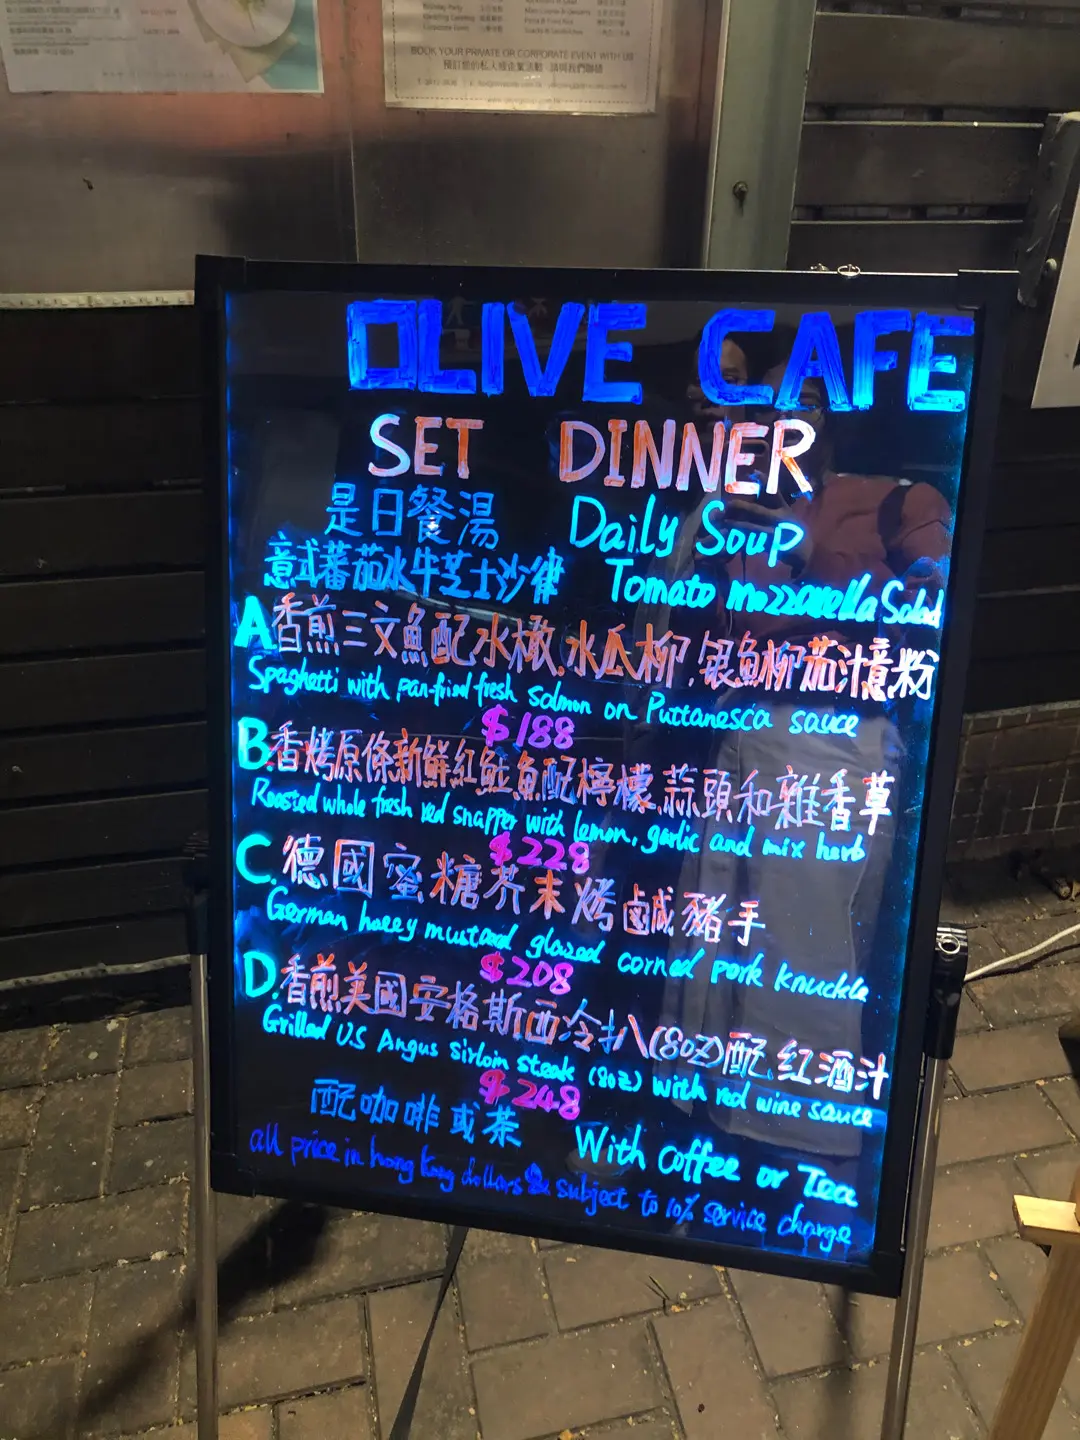 BOOK YOUR PRIVATE OR CORPORATE EVENT WITH US
預訂您的私人或企業活動，請與我們聯絡
OLIVE CAFE
SET DINNER
是日餐湯 Daily Soup
意式蕃茄水牛芝士沙律 Tomato mozzarella Salad
A 香煎三文魚配水橄,水瓜柳,銀魚柳茄汁意粉
Spaghetti with pan-fried fresh salmon on Puttanesca sauce
$188
B. 香烤原條新鮮紅魚配檸檬,蒜頭和雜香草
Roasted whole fresh red snapper with lemon, garlic and mix herb
$228
C. 德國蜜糖芥末烤鹹豬手
German honey mustard glazed corned pork knuckle
$208
D. 香煎美國安格斯西冷扒(8oz)配紅酒汁
Grilled U.S Angus Sirloin steak (8oz) with red wine sauce
$248
配咖啡或茶 With coffee or Tea
all price in hong kong dollars & subject to 10% service charge